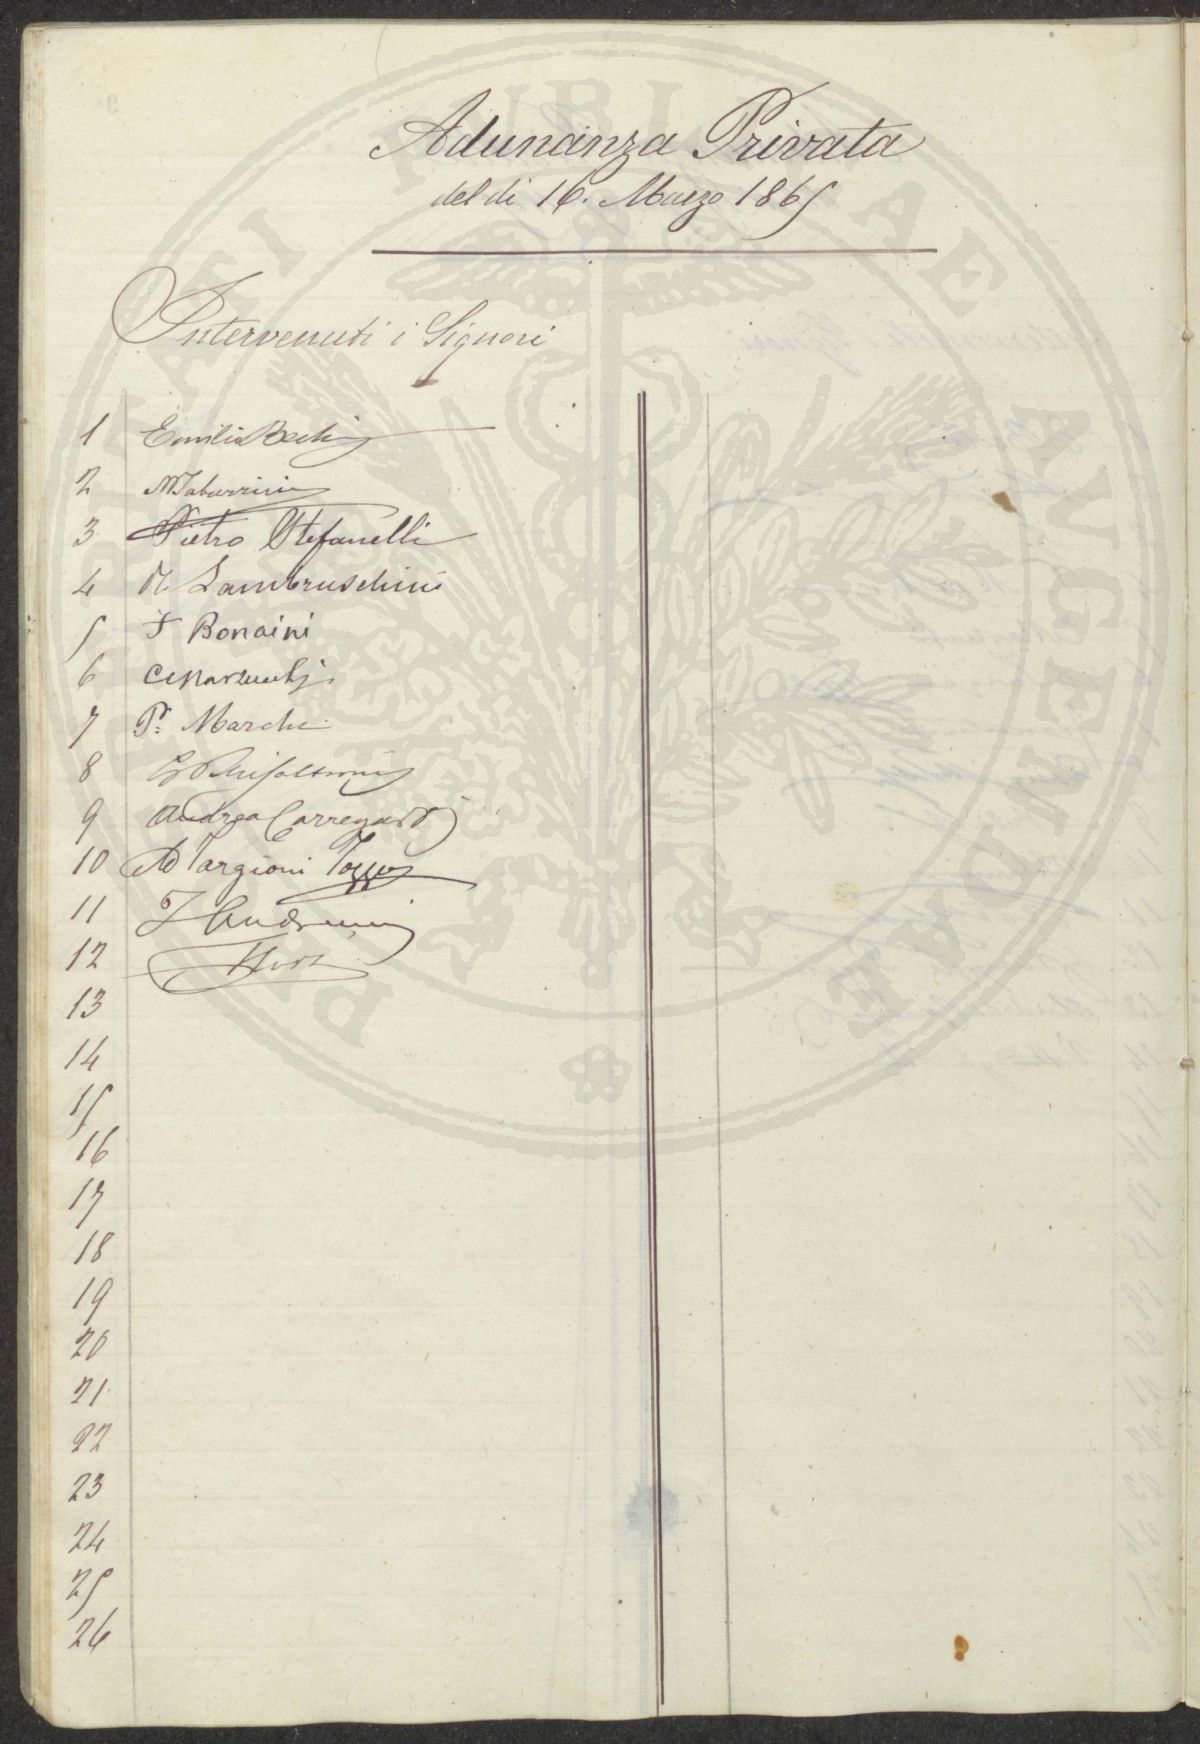 Adunanza Privata
del dì 16. Marzo 1865
Intervenuti i Signori
1 Emilio Bechi
2 M Tabarrini
3 Pietro Stefanelli
4 R Lambruschini
5 F Bonaini
6
7 Pr. Marchi
8
9 Andrea Carregari
10 Ad Targioni Tozz
11
12
13
14
15
16
17
18
19
20
21
22
23
24
25
26
PROSPERITATI PUBLICAE AVGENDAE